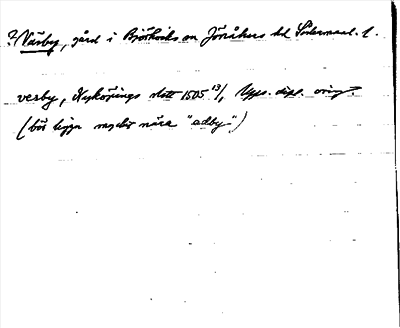 ? Väsby, gård i Björkviks sn Jönåkers hd Södermanl. l.
vesby, Nyköpings slott 1505 13/1 Upps. dipl. orig.
(bör ligga mycket nära "adby")